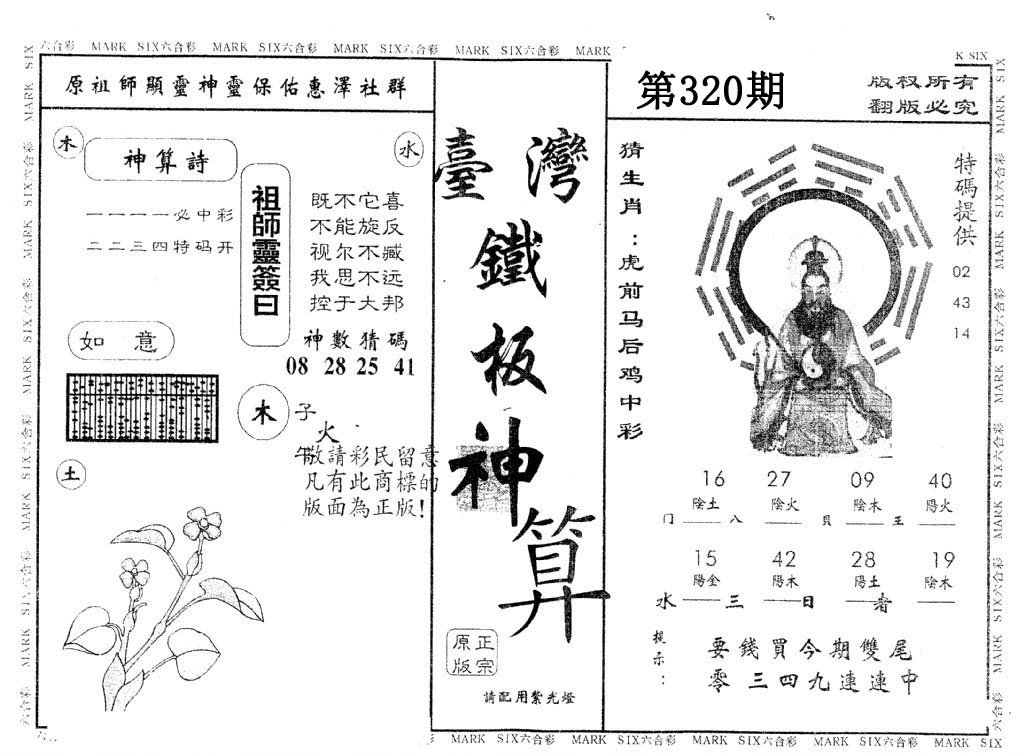 六合彩 MARK SIX六合彩 MARK SIX六合彩 MARK SIX六合彩 MARK SIX六合彩 MARK
K SIX
原祖師顯靈神靈保佑惠澤社群
木
水
神算詩
一一一一必中彩
二二三四特码开
祖師靈簽曰
既不它喜
不能旋反
视尔不臧
我思不远
控于大邦
神數猜碼
08 28 25 41
如意
木
子
火
午
敬請彩民留意
凡有此商標的
版面為正版!
土
臺灣
鐵
板
神
算
正宗
原版
請配用紫光燈
第320期
版权所有
翻版必究
猜生肖:虎前马后鸡中彩
特碼提供
02
43
14
16 27 09 40
陰土 陰火 陰木 陽火
门 八 貝 王
15 42 28 19
陽金 陽木 陽土 陰木
水 三 日 者
提示:
要錢買今期雙尾
零三四九連連中
MARK SIX六合彩 MARK SIX六合彩 MARK SIX六合彩 MARK SIX六合彩 MARK SIX